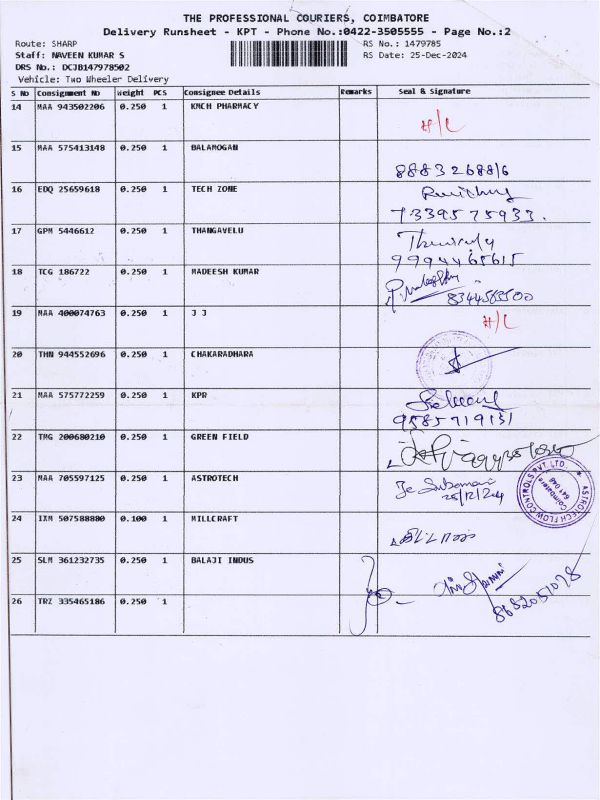 THE PROFESSIONAL COURIERS, COIMBATORE
Delivery Runsheet - KPT - Phone No.:0422-3505555 - Page No.:2
Route: SHARP
RS No.: 1479785
Staff: NAVEEN KUMAR S
RS Date: 25-Dec-2024
DRS No.: DCJB147978502
Vehicle: Two Wheeler Delivery
S No Consignment No Weight PCS Consignee Details Remarks Seal & Signature
14 MAA 943502206 0.250 1 KMCH PHARMACY
H/L
15 MAA 575413148 0.250 1 BALAMOGAN
8883268816
16 EDQ 25659618 0.250 1 TECH ZONE
7339575933.
17 GPM 5446612 0.250 1 THANGAVELU
9994465615
18 TCG 186722 0.250 1 MADEESH KUMAR
8344563500
19 MAA 400074763 0.250 1 J J
H/L
20 THN 944552696 0.250 1 CHAKARADHARA
21 MAA 575772259 0.250 1 KPR
9585719131
22 TMG 200680210 0.250 1 GREEN FIELD
23 MAA 705597125 0.250 1 ASTROTECH
25/12/24
ASTROTECH FLOW CONTROLS PVT. LTD.
Coimbatore
641 048
24 IXM 507588880 0.100 1 MILLCRAFT
25 SLM 361232735 0.250 1 BALAJI INDUS
8682051078
26 TRZ 335465186 0.250 1